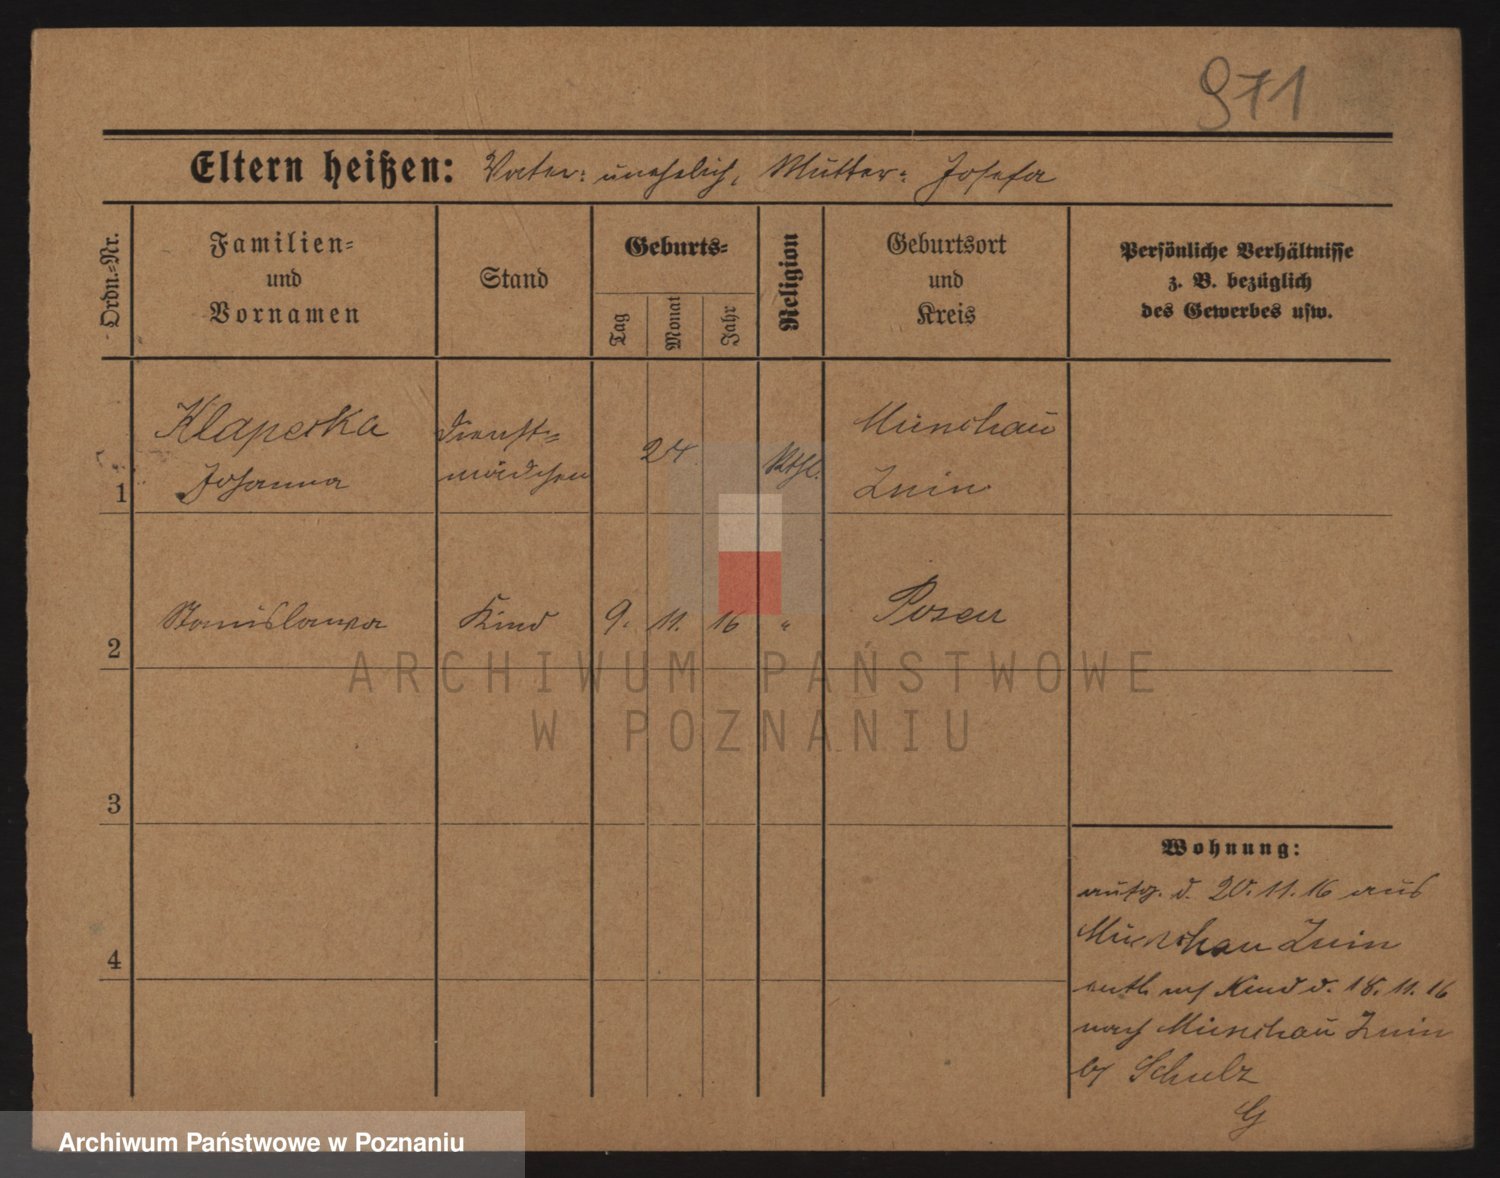 971
Eltern heißen: Vater: unehelich, Mutter: Josefa
Ordn.-Nr.
Familien-
und
Vornamen
Stand
Geburts-
Tag
Monat
Jahr
Religion
Geburtsort
und
Kreis
Persönliche Verhältnisse
z. B. bezüglich
des Gewerbes usw.
1
Klaperska
Johanna
Dienst-
mädchen
24.
Kthl.
Münchau
Znin
2
Stanislawa
Kind
9. 11. 16
"
Posen
3
4
Wohnung:
d. 20. 11. 16 aus
Znin
Kind d. 18. 11. 16
nach Münchau Znin
Schulz
G
ARCHIWUM PAŃSTWOWE
W POZNANIU
Archiwum Państwowe w Poznaniu